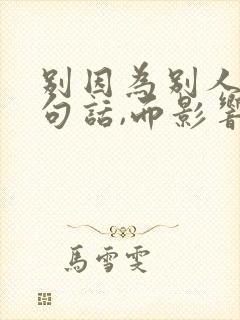 别因為别人
句話,而影響
馬雪雯